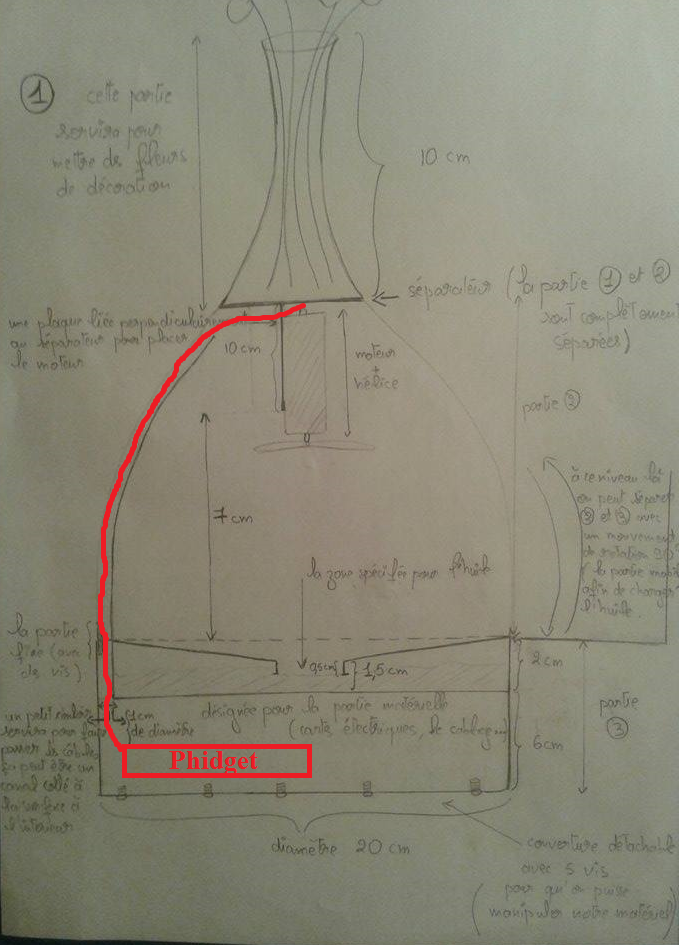 1
cette partie
servira pour
mettre des fleurs
de décoration
10 cm
séparateur (la partie 1 et 2
sont complètement
séparées)
une plaque liée perpendiculairement
au séparateur pour placer
le moteur
10 cm
moteur
+
hélice
partie 2
7 cm
à ce niveau là
on peut séparer
2 et 3 avec
un mouvement
de rotation
(la partie
afin de changer
l'huile.
la zone spécifiée pour l'huile
la partie
fixe (avec
des vis)
0,5cm
1,5cm
2 cm
un petit
servira pour faire
passer les câbles
ça peut être un
canal collé à
la surface à
l'intérieur
1cm
de diamètre
désignée pour la partie matérielle
(cartes électriques, le cablage...)
partie
3
6cm
Phidget
diamètre 20 cm
couverture détachable
avec 5 vis
(pour qu'on puisse
manipuler notre matériel)